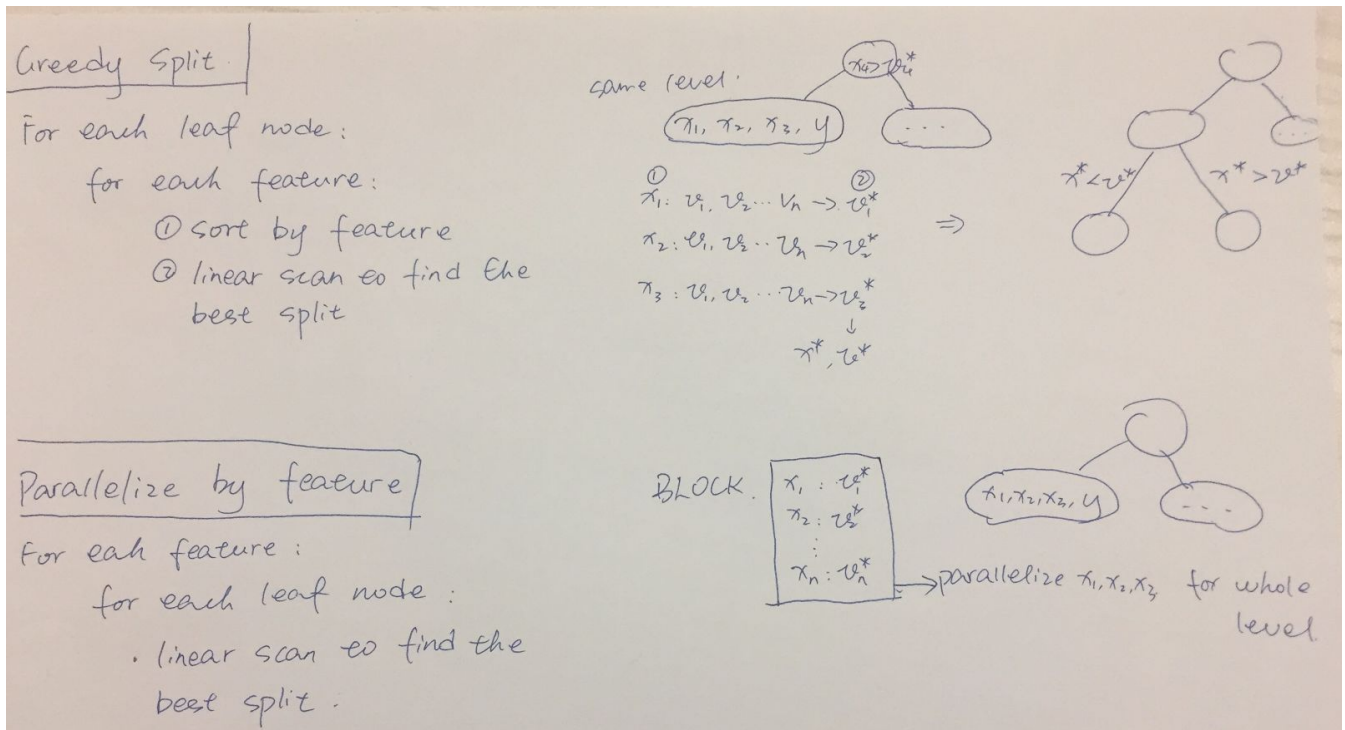 Greedy Split.
For each leaf node:
for each feature:
① sort by feature
② linear scan to find the
best split
same level.
x₄>v₄*
x₁, x₂, x₃, y
...
① ②
x₁: v₁, v₂ ... vₙ → v₁*
x₂: v₁, v₂ .. vₙ → v₂*
x₃: v₁, v₂ ... vₙ → v₃*
↓
x*, v*
⇒
...
x*<v* x*>v*
Parallelize by feature
For eah feature:
for each leaf node:
. linear scan to find the
best split.
BLOCK.
x₁ : v₁*
x₂ : v₂*
⋮
xₙ : vₙ*
x₁, x₂, x₃, y
...
→ parallelize x₁, x₂, x₃ for whole
level